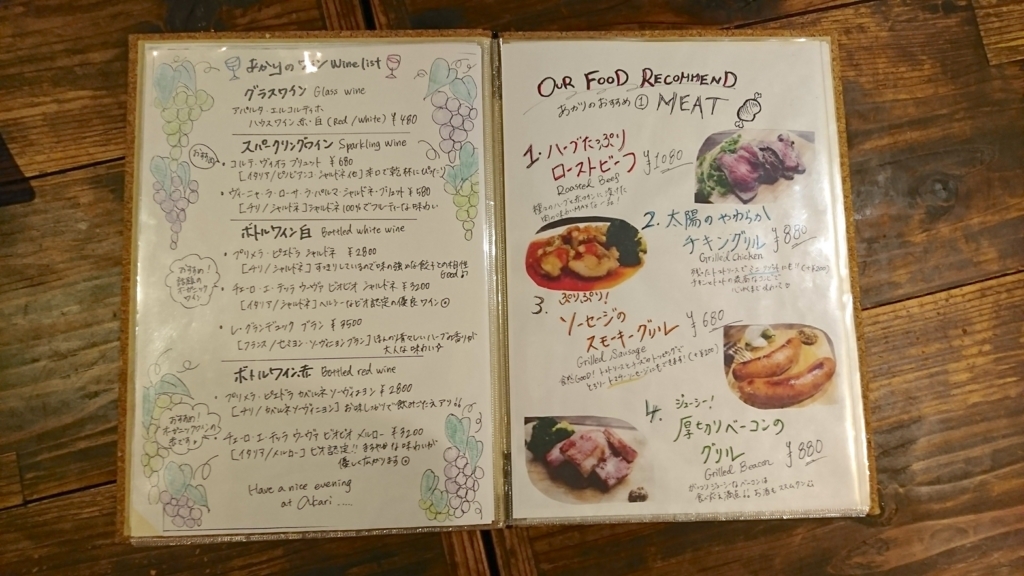 あかりの ワイン Wine list
グラスワイン Glass wine
アパルタ・エルコルティホ
ハウスワイン赤・白 (Red / White) ¥480
スパークリングワイン Sparkling wine
・コルテ・ヴィオラ ブリュット ¥680
・ヴィーニャ・ラ・ローサ・ラ・パルマ シャルドネ・ブリュット ¥580
[チリ / シャルドネ] シャルドネ 100%でフルーティーな味わい
ボトルワイン白 Bottled white wine
・プリメラ・ピエドラ シャルドネ ¥2800
[チリ / シャルドネ] すっきりしているので味の強めな餃子との相性
Good
おすすめ!
話題の
オーガニック
ワイン
・チェーロ・エ・テッラ ウーヴァ ビオビオ シャルドネ ¥3200
[イタリア/シャルドネ] ヘルシーなビオ認定の優良ワイン
・レ・グランデュック ブラン ¥3500
大人な味わい
ボトルワイン赤 Bottled red wine
・プリメラ・ピエドラ カベルネ・ソーヴィニヨン ¥2800
[チリ / カベルネソーヴィニヨン] お味しっかりで飲みごたえアリ
おすすめ!
オーガニックワインの
赤です
・チェーロ・エ・テッラ ウーヴァ ビオビオ メルロー ¥3200
[イタリア/メルロー] ビオ認定!! まろやかな味わいが
優しく広がります
Have a nice evening
at Akari .....
OUR FOOD RECOMMEND
あかりのおすすめ ① MEAT
1. ハーブたっぷり
ローストビーフ ¥1080
Roasted Beef
2. 太陽のやわらか
チキングリル ¥880
Grilled Chicken
3. ぷりぷり!
ソーセージの
スモーキーグリル ¥680
Grilled Sausage
4. ジューシー!
厚切りベーコンの
グリル ¥880
Grilled Beacon